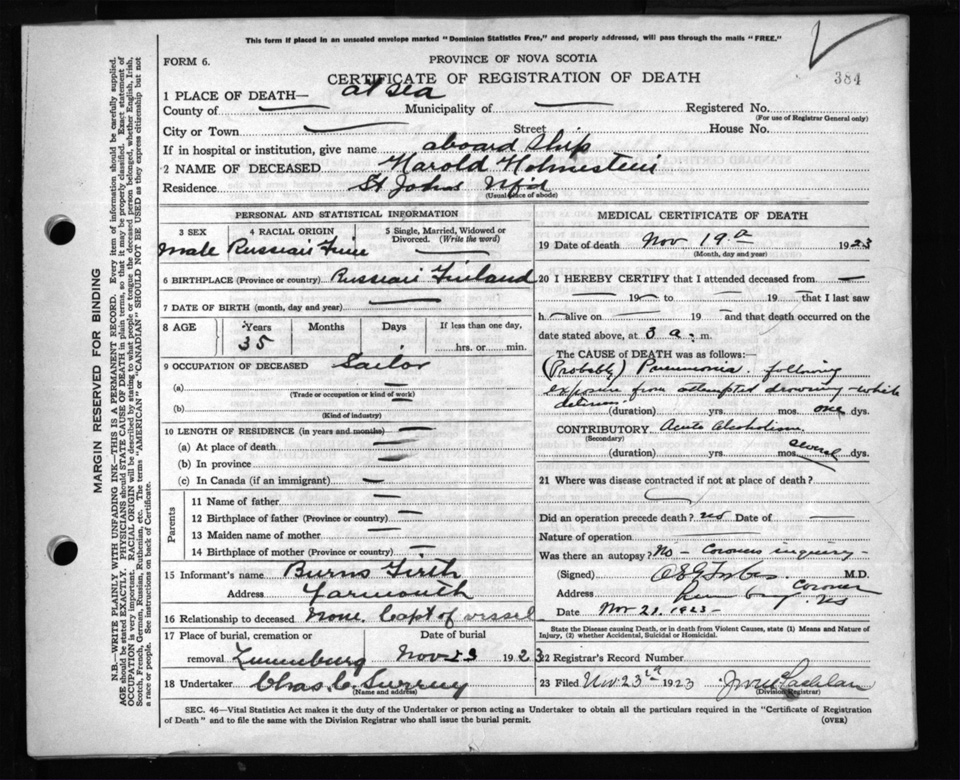 This form if placed in an unsealed envelope marked "Dominion Statistics Free," and properly addressed, will pass through the mails "FREE."
FORM 6.
PROVINCE OF NOVA SCOTIA
384
CERTIFICATE OF REGISTRATION OF DEATH
1 PLACE OF DEATH— at sea
County of Municipality of Registered No.
(For use of Registrar General only)
City or Town Street House No.
If in hospital or institution, give name aboard Ship
2 NAME OF DECEASED Harold
Residence St Johns Nfd
(Usual place of abode)
PERSONAL AND STATISTICAL INFORMATION
3 SEX 4 RACIAL ORIGIN 5 Single, Married, Widowed or Divorced. (Write the word)
Male Russian
6 BIRTHPLACE (Province or country) Russian Finland
7 DATE OF BIRTH (month, day and year)
8 AGE Years Months Days If less than one day,
35 hrs. or min.
9 OCCUPATION OF DECEASED Sailor
(a)
(Trade or occupation or kind of work)
(b)
(Kind of industry)
10 LENGTH OF RESIDENCE (in years and months)
(a) At place of death
(b) In province
(c) In Canada (if an immigrant)
Parents
11 Name of father
12 Birthplace of father (Province or country)
13 Maiden name of mother
14 Birthplace of mother (Province or country)
15 Informant's name Burns Firth
Address Yarmouth
16 Relationship to deceased None. Capt of vessel
17 Place of burial, cremation or Date of burial
removal Lunenburg Nov 23 1923
18 Undertaker Chas. C.
(Name and address)
MEDICAL CERTIFICATE OF DEATH
19 Date of death Nov 19 1923
(Month, day and year)
20 I HEREBY CERTIFY that I attended deceased from —
— 19— to — 19 that I last saw
h— alive on — 19 — and that death occurred on the
date stated above, at 3 a. m.
The CAUSE of DEATH was as follows:—
(Probably) Pneumonia. following
exposure from attempted drowning - while
(duration) yrs. mos. one dys.
CONTRIBUTORY Acute Alcoholism
(Secondary)
(duration) yrs. mos. several dys.
21 Where was disease contracted if not at place of death?
Did an operation precede death? no Date of
Nature of operation
Was there an autopsy? No - Coroners inquiry -
(Signed) M.D.
Address Coroner
NS
Date Nov 21. 1923
State the Disease causing Death, or in death from Violent Causes, state (1) Means and Nature of
Injury, (2) whether Accidental, Suicidal or Homicidal.
22 Registrar's Record Number
23 Filed Nov 23rd 1923
(Division Registrar)
SEC. 46—Vital Statistics Act makes it duty of the Undertaker or person acting as Undertaker to obtain all the particulars required in the "Certificate of Registration
of Death" and to file the same with the Division Registrar who shall issue the burial permit. (OVER)
MARGIN RESERVED FOR BINDING
N.B.—WRITE PLAINLY WITH UNFADING INK—THIS IS A PERMANENT RECORD. Every item of information should be carefully supplied.
AGE should be stated EXACTLY. PHYSICIANS should STATE CAUSE OF DEATH in plain terms, so that it may be properly classified. Exact statement of
OCCUPATION is very important. RACIAL ORIGIN will be described by stating to what people or tongue the deceased person belonged, whether English, Irish,
Scotch, French, German, Russian, Ruthenian, etc. The terms "AMERICAN" or "CANADIAN" SHOULD NOT BE USED as they express citizenship but not
a race or people. See instructions on back of Certificate.